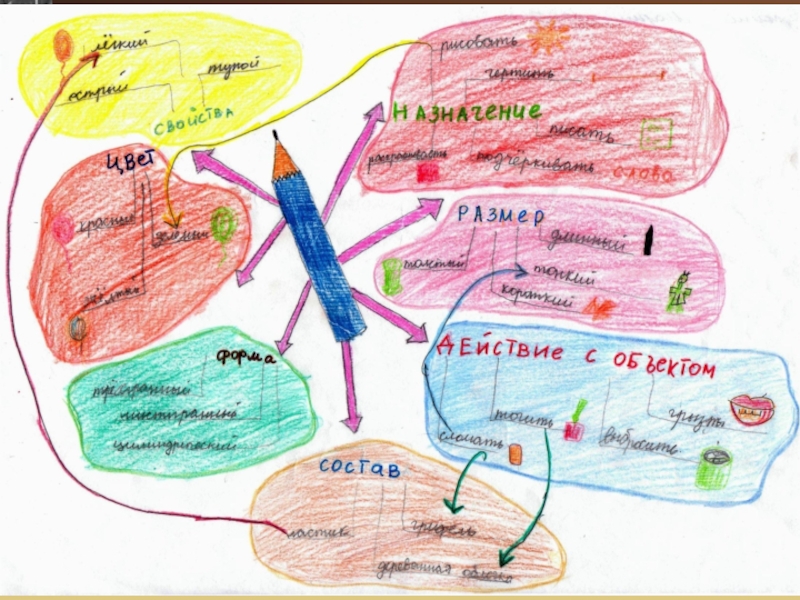 лёгкий
тупой
острый
свойства
рисовать
чертить
НАЗНАЧЕНИЕ
писать
раскрашивать
подчёркивать
слова
Цвет
красный
зелёный
жёлтый
РАЗМЕР
длинный
толстый
тонкий
короткий
форма
трёхгранный
шестигранный
цилиндрический
ДЕЙСТВИЕ С ОБЪЕКТОМ
точить
грызть
сломать
выбросить
СОСТАВ
ластик
грифель
деревянная